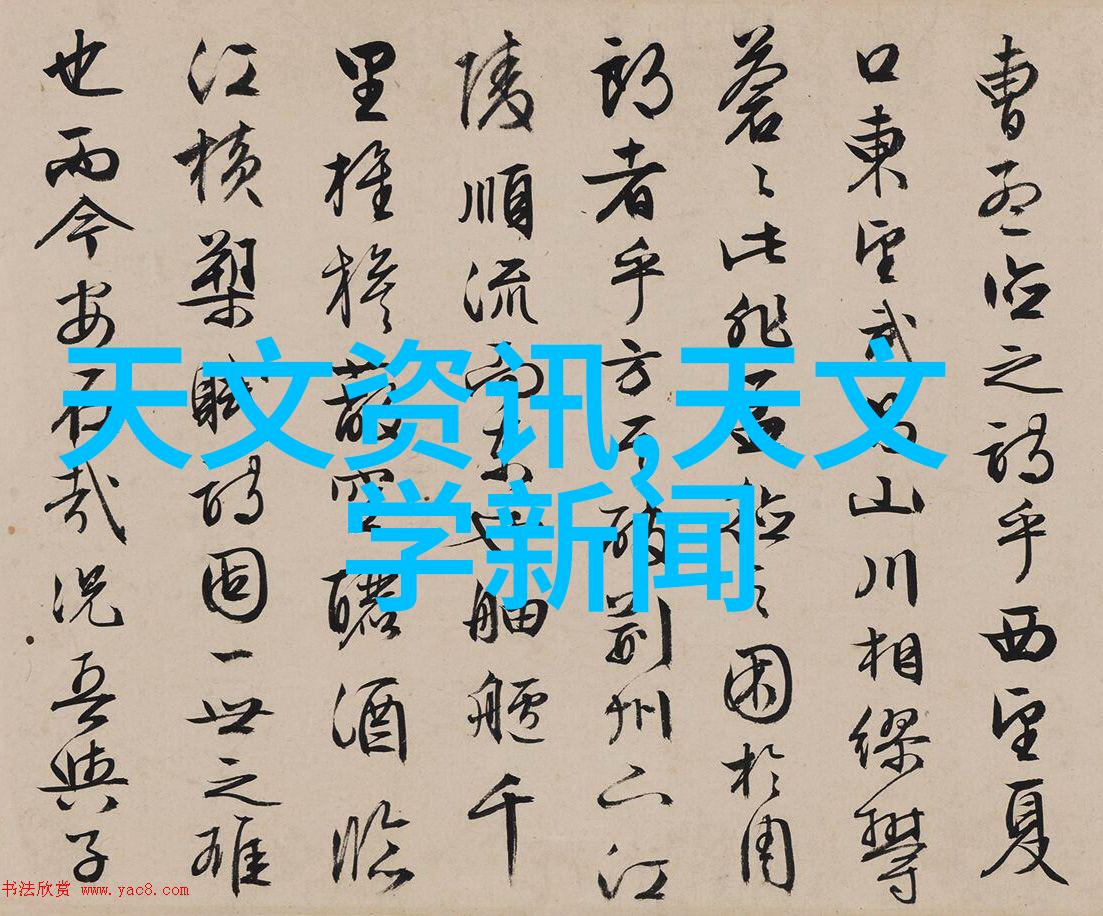 天文资讯,天文
学新闻
曹孟德之詩乎西望夏
口東望武昌山川相繆鬱
蒼〻此非孟德之困於周
郎者乎方其破荊州下江
陵順流而東也舳艫千
里旌旗蔽空釃酒臨
江橫槊賦詩固一世之雄
也而今安在哉況吾與子
书法欣赏 www.yac8.com